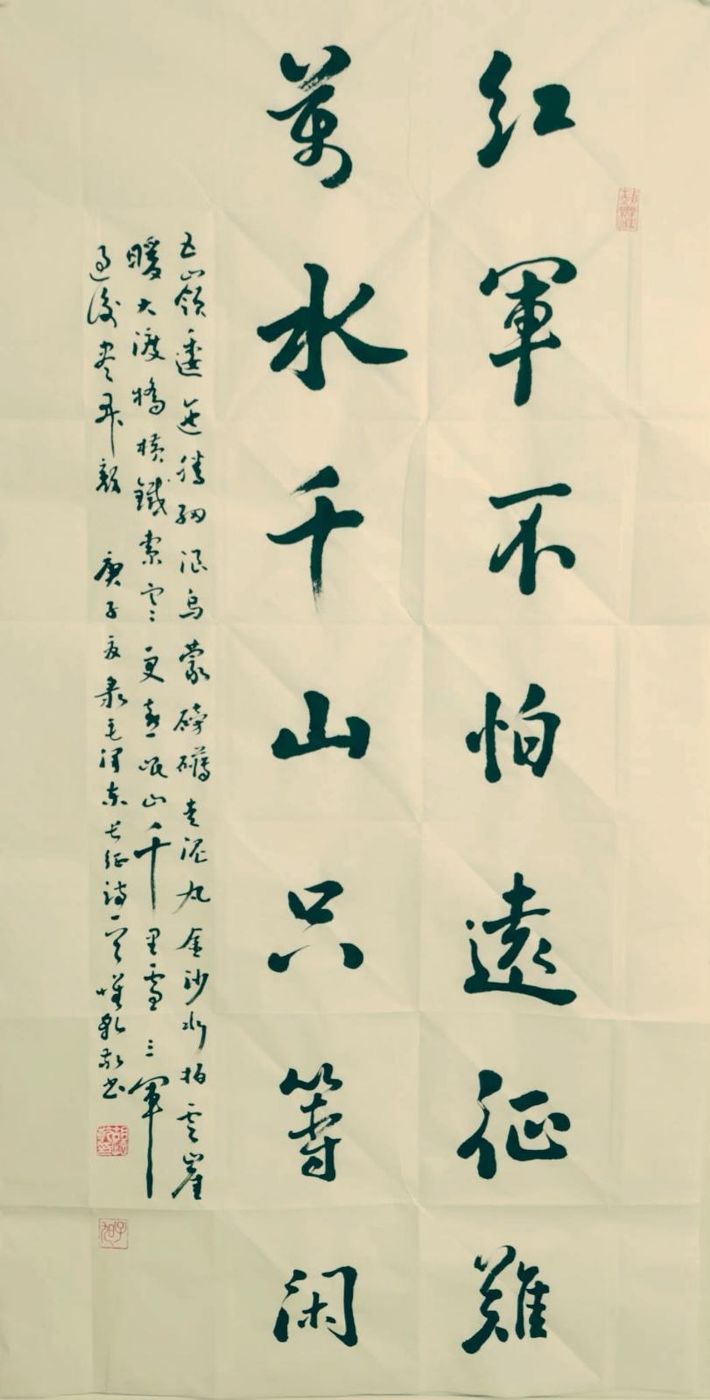 红軍不怕遠征難
萬水千山只等闲
五嶺逶迤騰細浪烏蒙磅礴走泥丸金沙水拍雲崖
暖大渡橋橫鐵索寒更喜岷山千里雪三軍
過後尽開顏 庚子夏录毛澤東長征詩一首 书